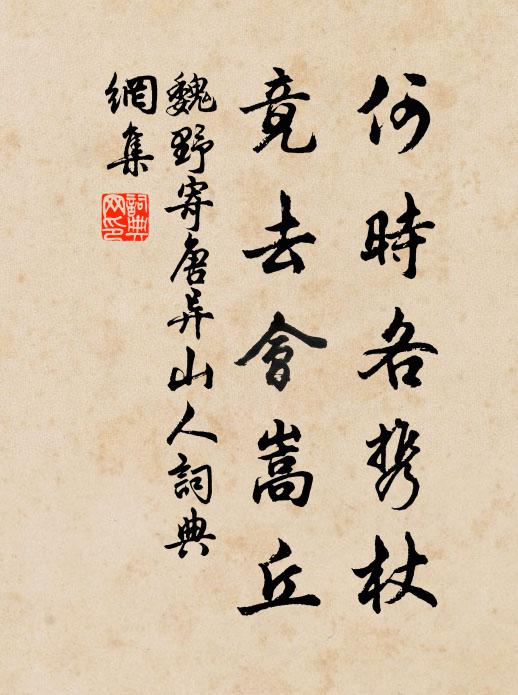 何時各攜杖
竟去會嵩丘
魏野寄唐异山人詞典
網集
詞典網印